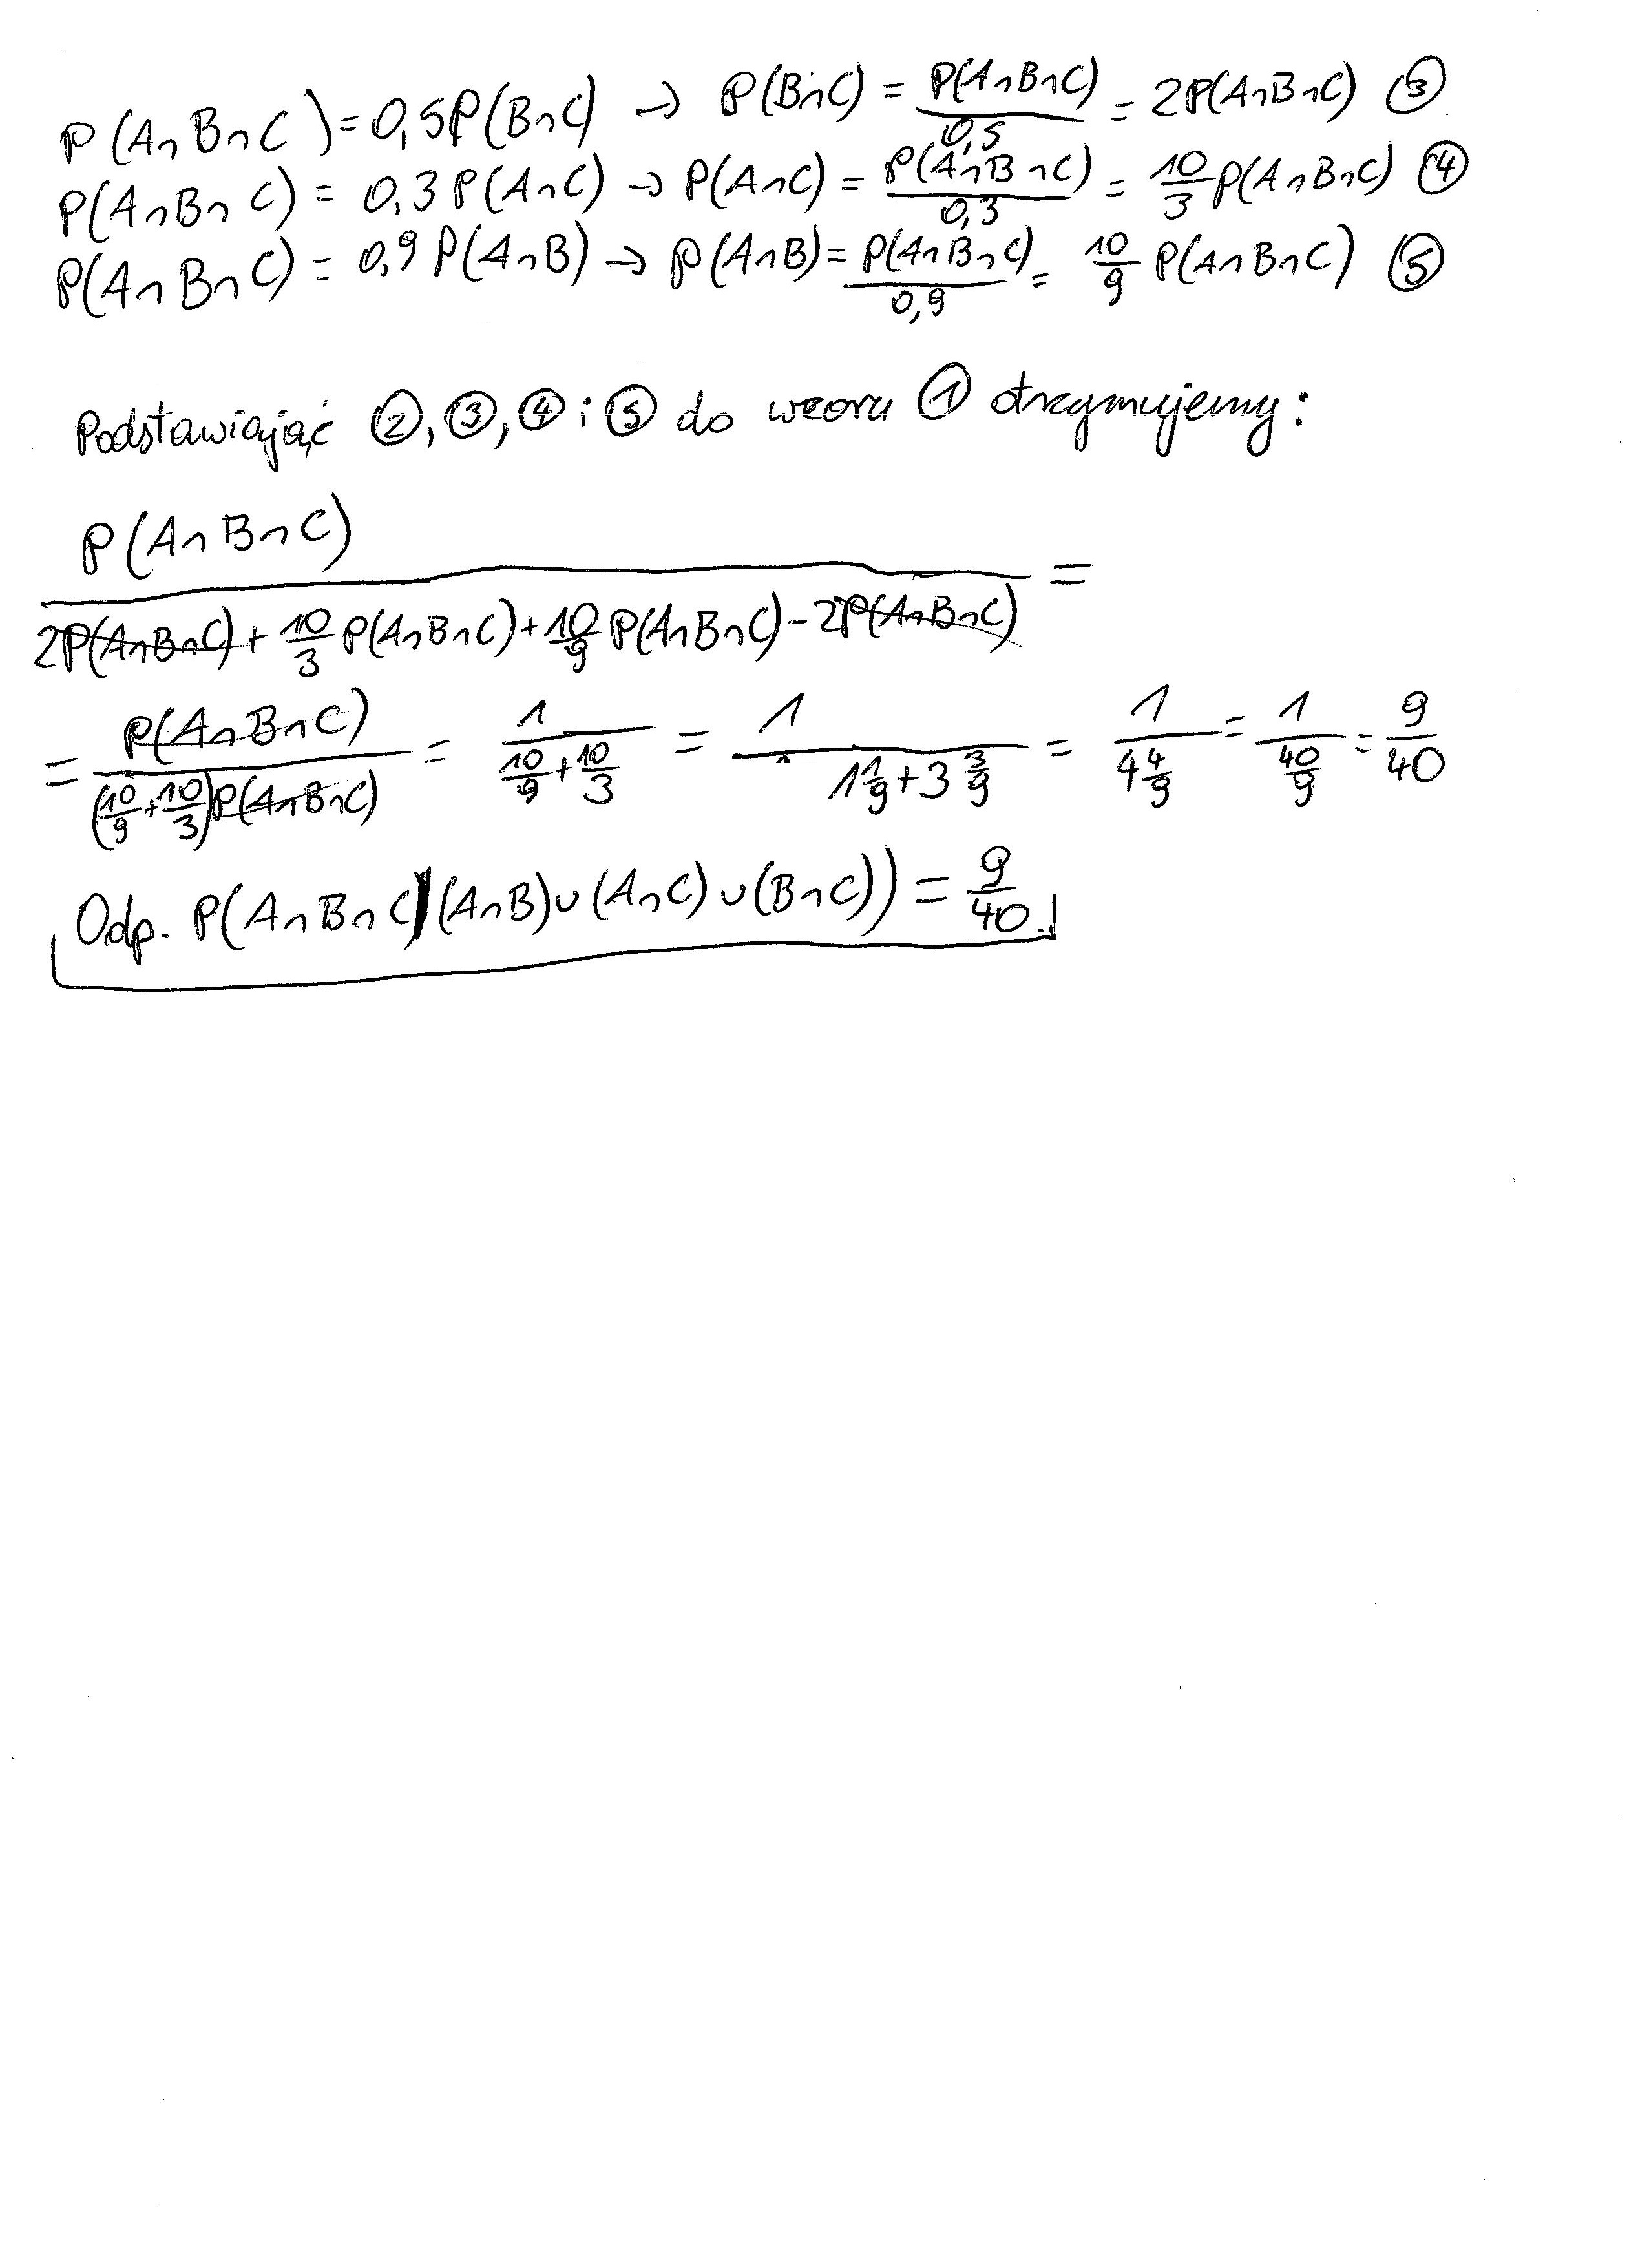 P(A∩B∩C) = 0,5P(B∩C) → P(B∩C) = P(A∩B∩C)/0,5 = 2P(A∩B∩C) ③
P(A∩B∩C) = 0,3P(A∩C) → P(A∩C) = P(A∩B∩C)/0,3 = 10/3 P(A∩B∩C) ④
P(A∩B∩C) = 0,9P(A∩B) → P(A∩B) = P(A∩B∩C)/0,9 = 10/9 P(A∩B∩C) ⑤
Podstawiająć ②, ③, ④ i ⑤ do wzoru ① otrzymujemy:
P(A∩B∩C)
/ 2P(A∩B∩C) + 10/3 P(A∩B∩C) + 10/9 P(A∩B∩C) - 2P(A∩B∩C) =
= P(A∩B∩C)/(10/9 + 10/3)P(A∩B∩C) = 1/(10/9 + 10/3) = 1/(1 1/9 + 3 3/9) = 1/(4 4/9) = 1/(40/9) = 9/40
Odp. P(A∩B∩C|(A∩B)∪(A∩C)∪(B∩C)) = 9/40.